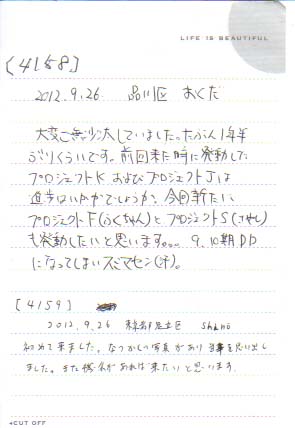 LIFE IS BEAUTIFUL
[4158]
2012.9.26 品川区 おくだ
大変ご無沙汰していました。たぶん1年半
ぶりくらいです。前回来た時に発動した
プロジェクトK およびプロジェクトJは
進歩はいかがでしょうか。今回新たに
プロジェクトF(ふくちゃん)とプロジェクトS(さやし)
も発動したいと思います。。。9、10期DD
になってしまいスミマセン(汗)。
[4159]
2012.9.26 東京都足立区
初めて来ました。なつかしの写真があり当事を思い出し
ました。また機会があれば来たいと思います。
CUT OFF